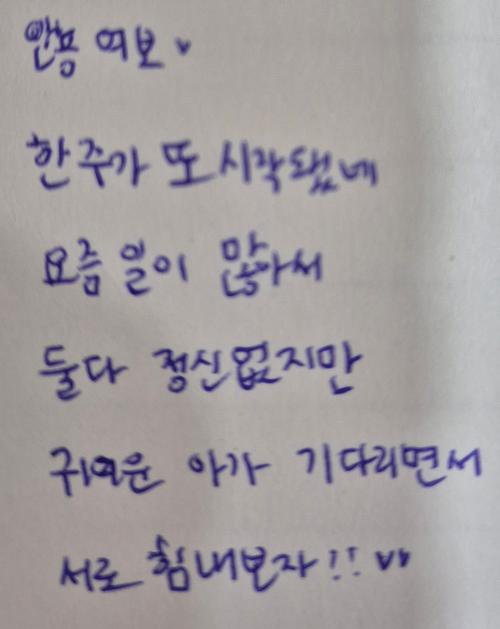 안뇽 여보♥
한 주가 또 시작됐네
요즘 일이 많아서
둘다 정신없지만
귀여운 아가 기다리면서
서로 힘내보자!! ♥♥